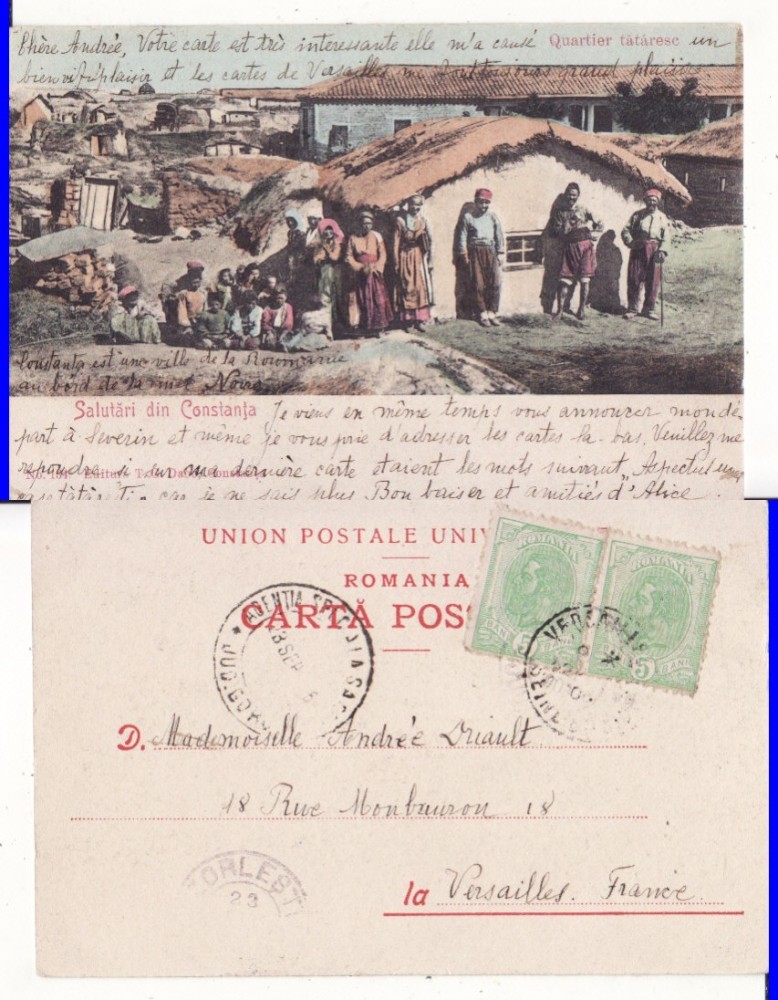 Chère Andrée, Votre carte est très interessante elle m'a causé un
Quartier tătăresc
bien vif plaisir et les cartes de Versailles me font toujours grand plaisir.
Constanța est une ville de la Roumanie
au bord de la mer Noire
Salutări din Constanța
Je viens en même temps vous annoncer mon dé-
part à Severin et même je vous prie d'adresser les cartes la-bas. Veuillez me
repondre si sur ma dernière carte étaient les mots suivant, Aspectul unei
No. 154 Editura T. Constanța
car je ne sais plus Bon baiser et amitiés d'Alice
UNION POSTALE UNIV
ROMANIA
CARTĂ POS
ROMANIA
5 BANI
ROMANIA
5 BANI
AGENTIA SPECIALA
13 SEP
D. Mademoiselle Andrée Driault
18 Rue Monbauron 18
la Versailles. France.
TORLESTI
23